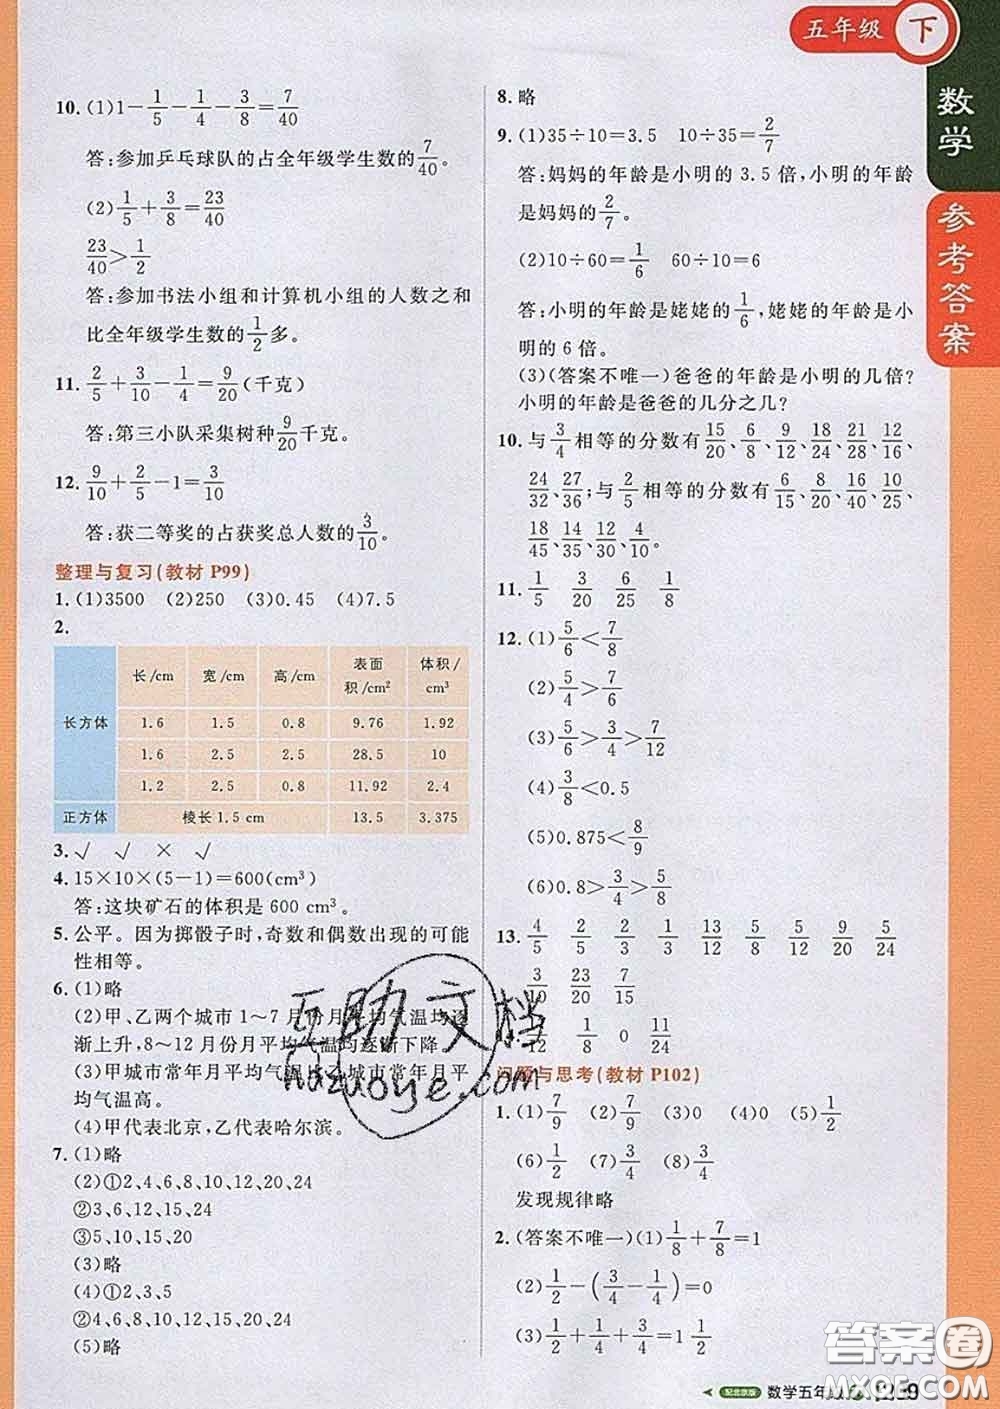 五年级 下
数学
参考答案
10. (1)1－1/5－1/4－3/8＝7/40
答:参加乒乓球队的占全年级学生数的7/40。
(2)1/5＋3/8＝23/40
23/40＞1/2
答:参加书法小组和计算机小组的人数之和
比全年级学生数的1/2多。
11. 2/5＋3/10－1/4＝9/20(千克)
答:第三小队采集树种9/20千克。
12. 9/10＋2/5－1＝3/10
答:获二等奖的占获奖总人数的3/10。
整理与复习(教材 P99)
1. (1)3500 (2)250 (3)0.45 (4)7.5
2.
长/cm 宽/cm 高/cm 表面积/cm² 体积/cm³
长方体 1.6 1.5 0.8 9.76 1.92
1.6 2.5 2.5 28.5 10
1.2 2.5 0.8 11.92 2.4
正方体 棱长1.5 cm 13.5 3.375
3. √ √ × √
4. 15×10×(5－1)＝600(cm³)
答:这块矿石的体积是 600 cm³。
5. 公平。因为掷骰子时,奇数和偶数出现的可能
性相等。
6. (1)略
(2)甲、乙两个城市 1～7 月份月平均气温均逐
渐上升,8～12 月份月平均气温均逐渐下降
(3)甲城市常年月平均气温比乙城市常年月平
均气温高。
(4)甲代表北京,乙代表哈尔滨。
7. (1)略
(2)①2、4、6、8、10、12、20、24
②3、6、12、15、24
③5、10、15、20
(3)略
(4)①2、3、5
②4、6、8、9、10、12、15、20、24
(5)略
8. 略
9. (1)35÷10＝3.5 10÷35＝2/7
答:妈妈的年龄是小明的 3.5 倍,小明的年龄
是妈妈的2/7。
(2)10÷60＝1/6 60÷10＝6
答:小明的年龄是姥姥的1/6,姥姥的年龄是小
明的 6 倍。
(3)(答案不唯一)爸爸的年龄是小明的几倍?
小明的年龄是爸爸的几分之几?
10. 与3/4相等的分数有15/20、6/8、9/12、18/24、21/28、12/16、
24/32、27/36;与2/5相等的分数有6/15、8/20、16/40、10/25、
18/45、14/35、12/30、4/10。
11. 1/5 3/20 6/25 1/8
12. (1)5/6＜7/8
(2)5/4＞7/6
(3)5/6＞3/4＞7/12
(4)3/8＜0.5
(5)0.875＜8/9
(6)0.8＞3/4＞5/8
13. 4/5 2/5 2/3 1/3 13/12 5/8 5/12 9/20 5/24
3/10 23/20 7/15
/12 1/8 0 11/24
问题与思考(教材 P102)
1. (1)7/9 (2)7/9 (3)0 (4)0 (5)1/2
(6)1/2 (7)3/4 (8)3/4
发现规律略
2. (答案不唯一)(1)1/8＋7/8＝1
(2)1/2－(3/4－1/4)＝0
(3)1/2＋1/4＋3/4＝1 1/2
互助文档
hdzuoye.com
配北京版 数学五年
答案圈